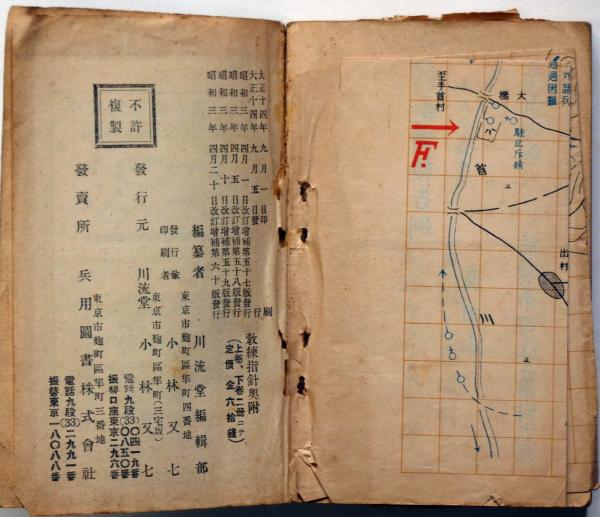 大正十四年九月一日印刷
大正十四年九月五日發行
昭和三年四月一日改訂增補第五十七版發行
昭和三年四月五日改訂增補第五十八版發行
昭和三年四月十日改訂增補第五十九版發行
昭和三年四月二十日改訂增補第六十版發行
敎練指針奧附
(上卷、下卷二册ニテ
定價金六拾錢)
編纂者 川流堂編輯部
東京市麴町區隼町四番地
發行兼
印刷者 小林又七
東京市麴町區隼町(三宅坂)
發行元 川流堂 小林又七
電話九段(33)〇四一九番
〇八五〇番
振替口座東京二九六番
東京市麴町區隼町三番地
發賣所 兵用圖書株式會社
電話九段(33)二九九一番
振替東京一八〇八八番
不許
複製
外諸兵
通過困難
大橋
至手首村
駐止斥候
小
F.
首
川
出村